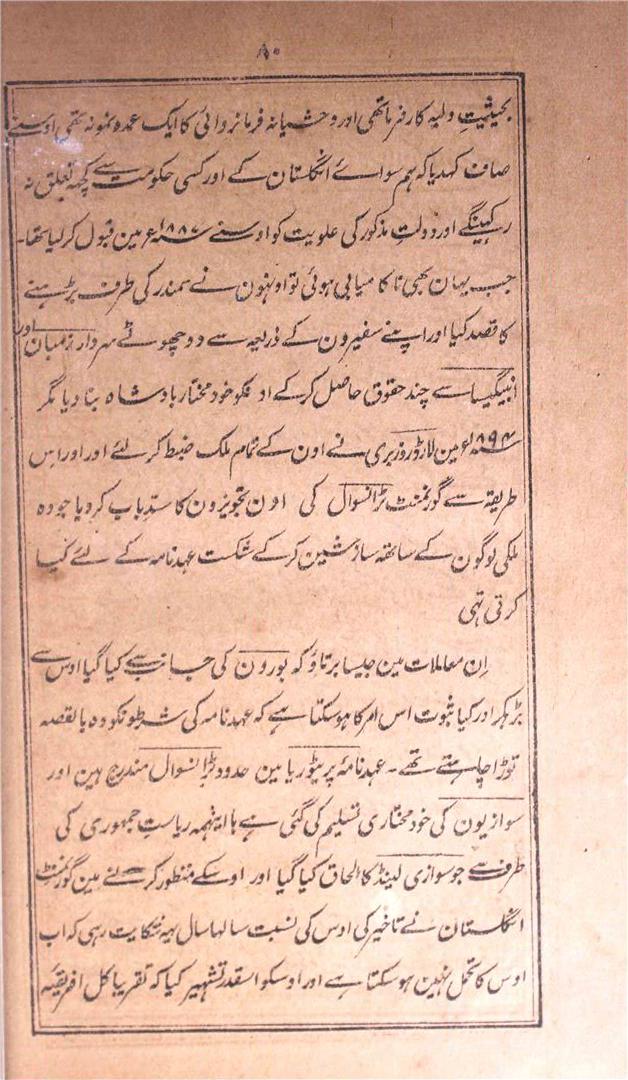 ۸۰
بحیثیتِ ولیہ کارفرما تھی اور وحشیانہ فرمانروائی کا ایک عمدہ نمونہ تھی اوسنے
صاف کہدیا کہ ہم سواے انگلستان کے اور کسی حکومت سے کچھ تعلق نہ
رکہینگے اور دولتِ مذکور کی علویت کو اوسنے سنہ ۱۸۸۷ء مین قبول کر لیا تھا۔
جب یہان بھی ناکامیابی ہوئی تو اونہون نے سمندر کی طرف بڑہنے
کا قصد کیا اور اپنے سفیرون کے ذریعہ سے دو چھوٹے سردار زمبان اور
انبیگیسا سے چند حقوق حاصل کرکے اونکو خود مختار بادشاہ بنا دیا مگر
سنہ ۱۸۹۴ء مین لارڈ روزبری نے اون کے تمام ملک ضبط کر لئے اور اور اس
طریقہ سے گورنمنٹ ٹرانسوال کی اون تجویزون کا سدِّ باب کر دیا جو وہ
ملکی لوگون کے ساتھ سازشین کرکے شکست عہدنامہ کے لئے کیا
کرتی تہی
اِن معاملات مین جیسا برتاؤ کہ بورون کی جانب سے کیا گیا اوس سے
بڑہکر اور کیا ثبوت اس امر کا ہوسکتا ہے کہ عہدنامہ کی شرطونکو وہ بالقصد
توڑا چاہتے تھے۔ عہدنامۂ پریٹوریا مین حدود ٹرانسوال مندرج ہین اور
سوازیون کی خود مختاری تسلیم کی گئی ہے باینہمہ ریاستِ جمہوری کی
طرف سے جو سوازی لینڈ کا الحاق کیا گیا اور اوسکے منظور کرنے مین گورنمنٹ
انگلستان نے تاخیر کی اوس کی نسبت سالہا سال یہ شکایت رہی کہ اب
اوس کا تحمل نہین ہوسکتا ہے اور اوسکو اسقدر تشہیر کیا کہ تقریباً کل افریقیہ